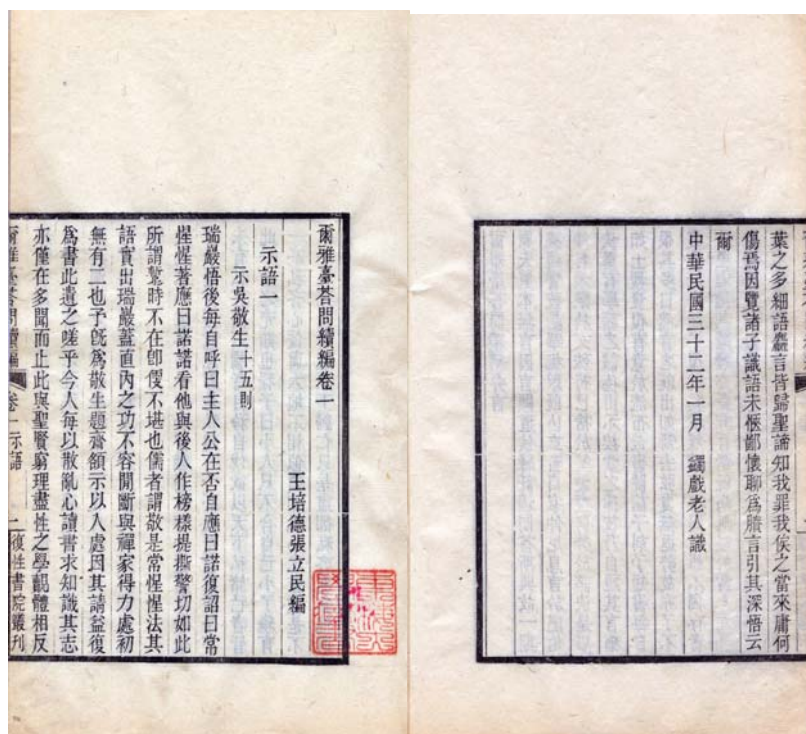 葉之多細語麤言皆歸聖諦知我罪我俟之當來庸何
傷焉因覽諸子識語未愜鄙懷聊爲賸言引其深悟云
爾
中華民國三十二年一月　蠲戲老人識
爾雅臺荅問續編卷一
王培德張立民編
示語一
示吳敬生十五則
瑞巖悟後每自呼曰主人公在否自應曰諾復詔曰常
惺惺著應曰諾諾看他與後人作榜樣提撕警切如此
所謂蹔時不在卽便不堪也儒者謂敬是常惺惺法其
語實出瑞巖蓋直内之功不容閒斷與禪家得力處初
無有二也予旣爲敬生題齋額示以入處因其請益復
爲書此遺之嗟乎今人每以散亂心讀書求知識其志
亦僅在多聞而止此與聖賢窮理盡性之學覿體相反
爾雅臺荅問續編
卷一　示語
一
復性書院叢刊